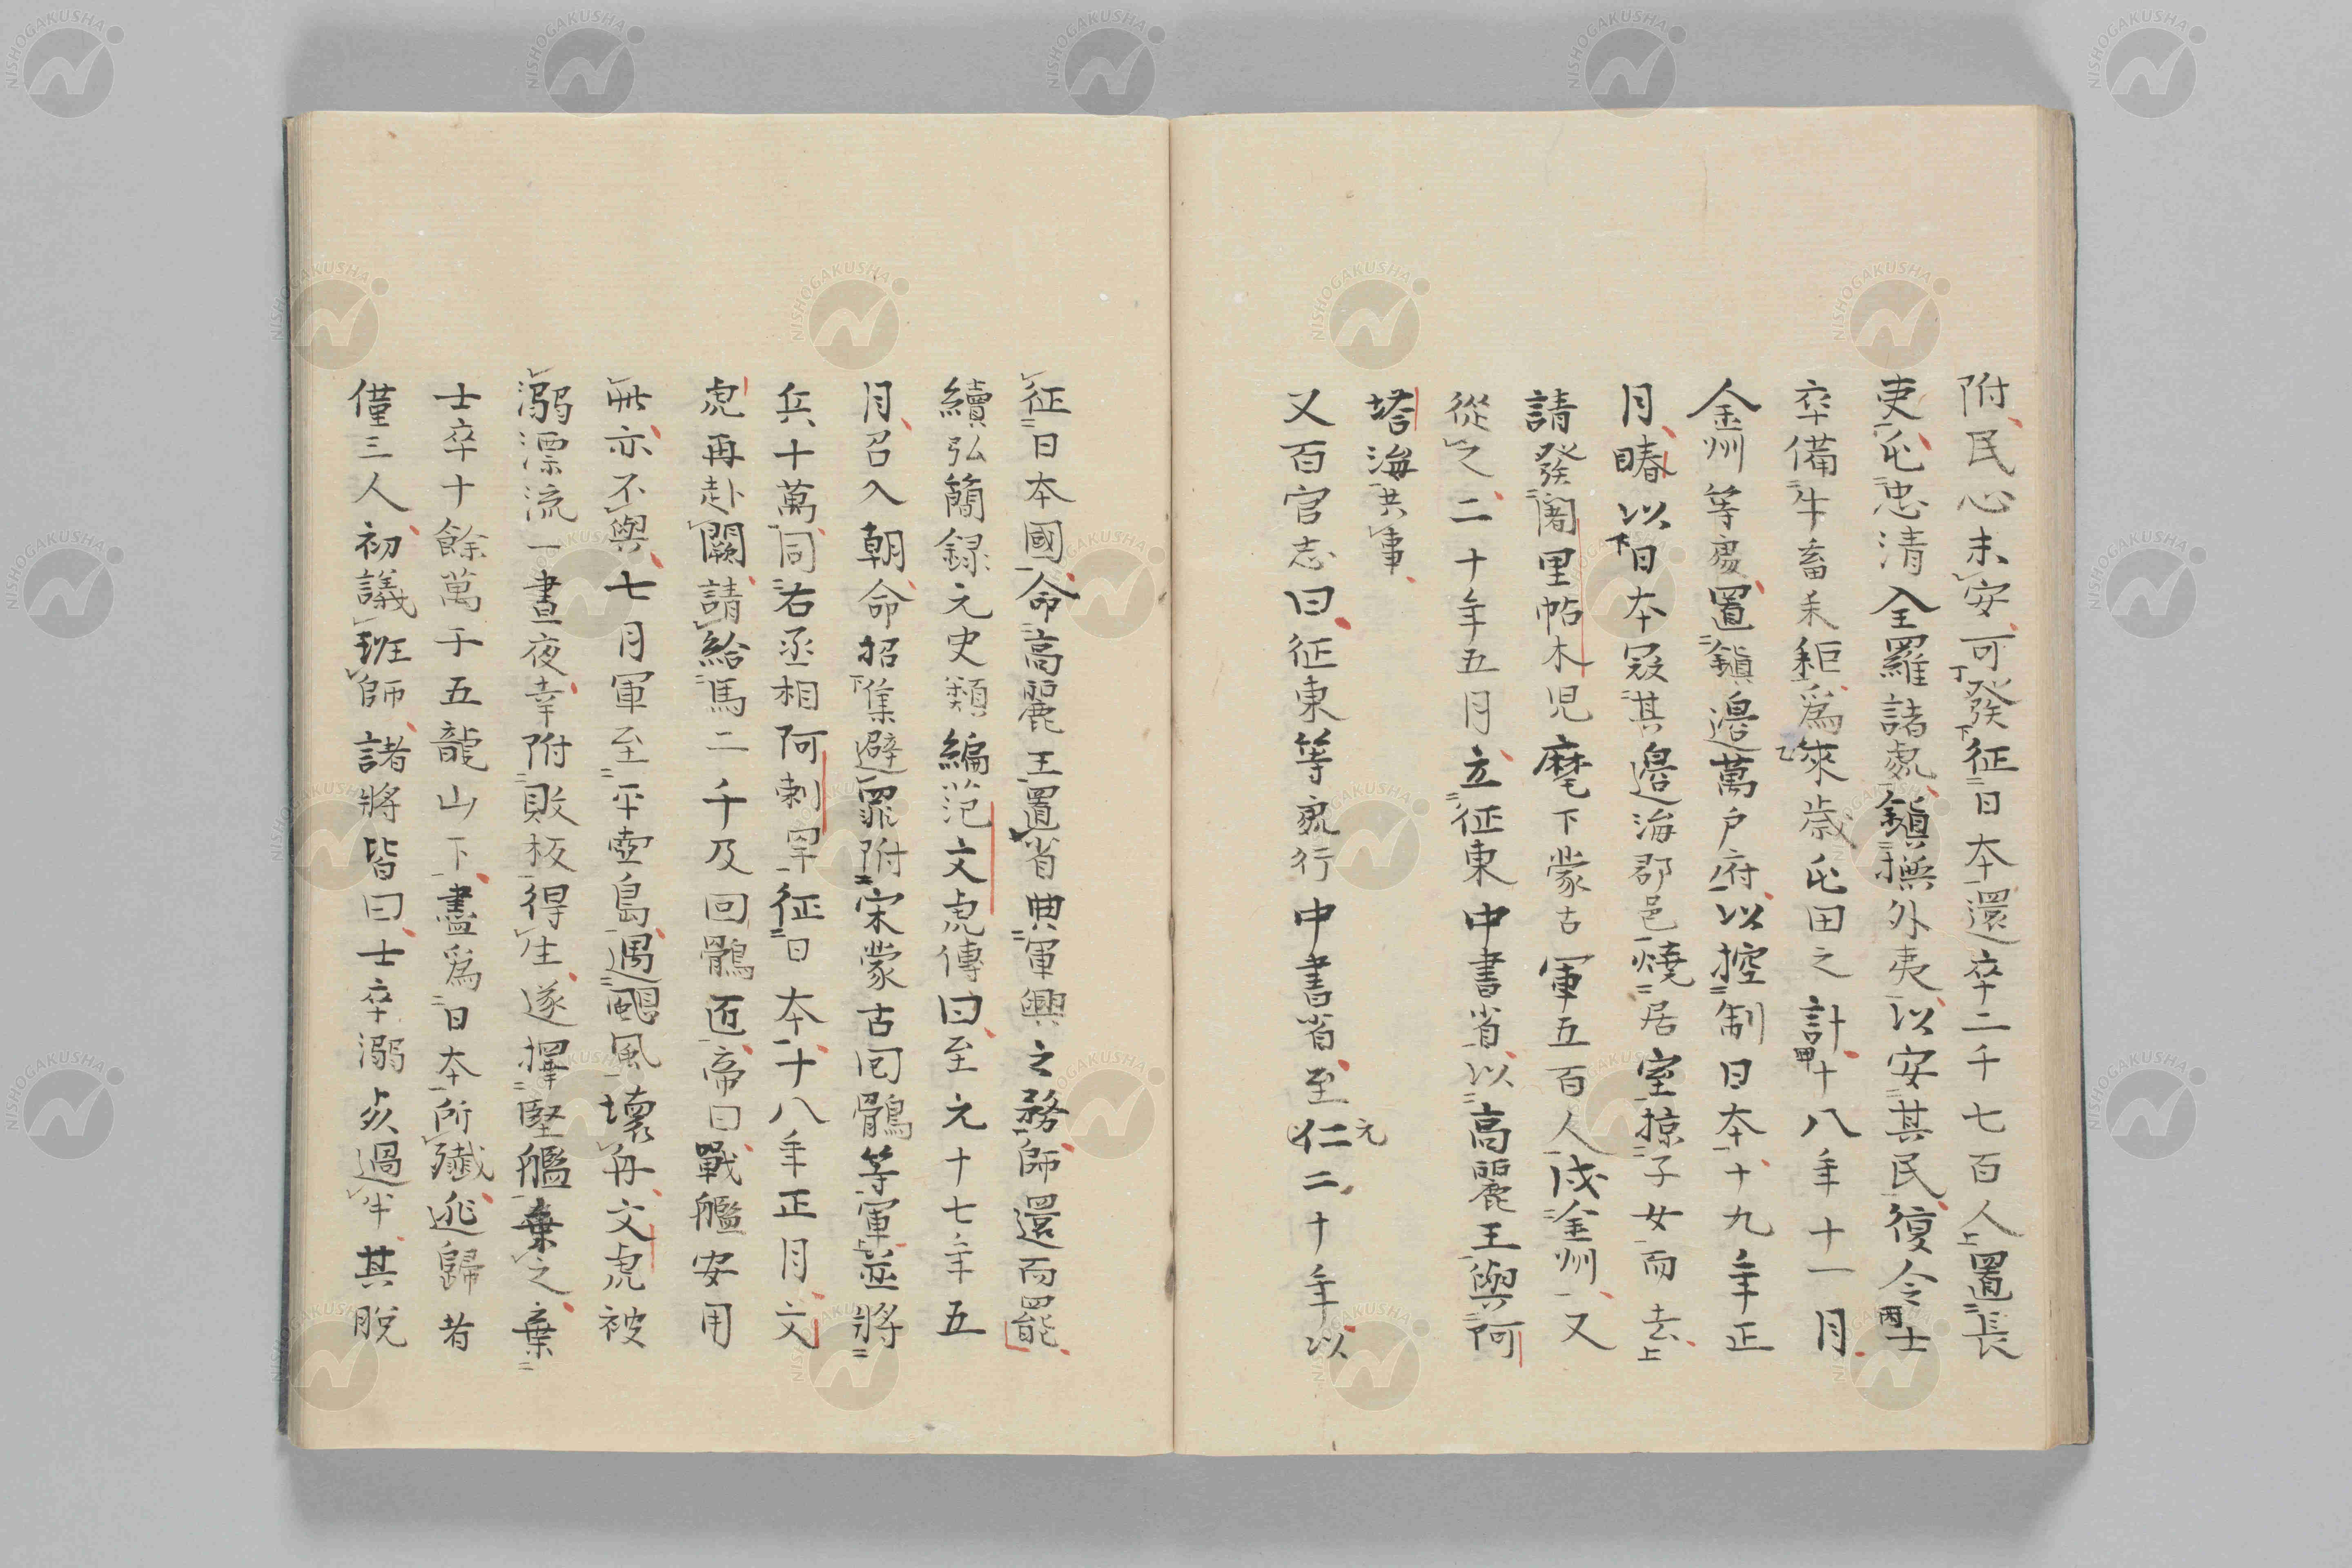 附民心未安可發征日本還卒二千七百人置長
吏屯忠清全羅諸處鎮撫外夷以安其民復令士
卒備牛畜耒耟爲來歳屯田之計十八年十一月
金州等處置鎭邊萬戸府以控制日本十九年正
月賰以日本寇其邊海郡邑燒居室掠子女而去
請發闍里帖木児麾下蒙古軍五百人戍金州又
從之二十年五月立征東中書省以高麗王與阿
塔海共事
又百官志曰征東等處行中書省至仁二十年以
元
征日本國命高麗王置省典軍興之務師還而罷
續弘簡録元史類編范文虎傳曰至元十七年五
月召入朝命招集避罪附宋蒙古回鶻等軍並將
兵十萬同右丞相阿剌罕征日本十八年正月文
虎再赴闕請給馬二千及回鶻匠帝曰戰艦安用
此亦不與七月軍至平壺島遇颶風壞舟文虎被
溺漂流一晝夜幸附敗板得生遂擇堅艦棄之棄
士卒十餘萬于五龍山下盡爲日本所殲逃歸者
僅三人初議班師諸將皆曰士卒溺死過半其脱
NISHOGAKUSHA